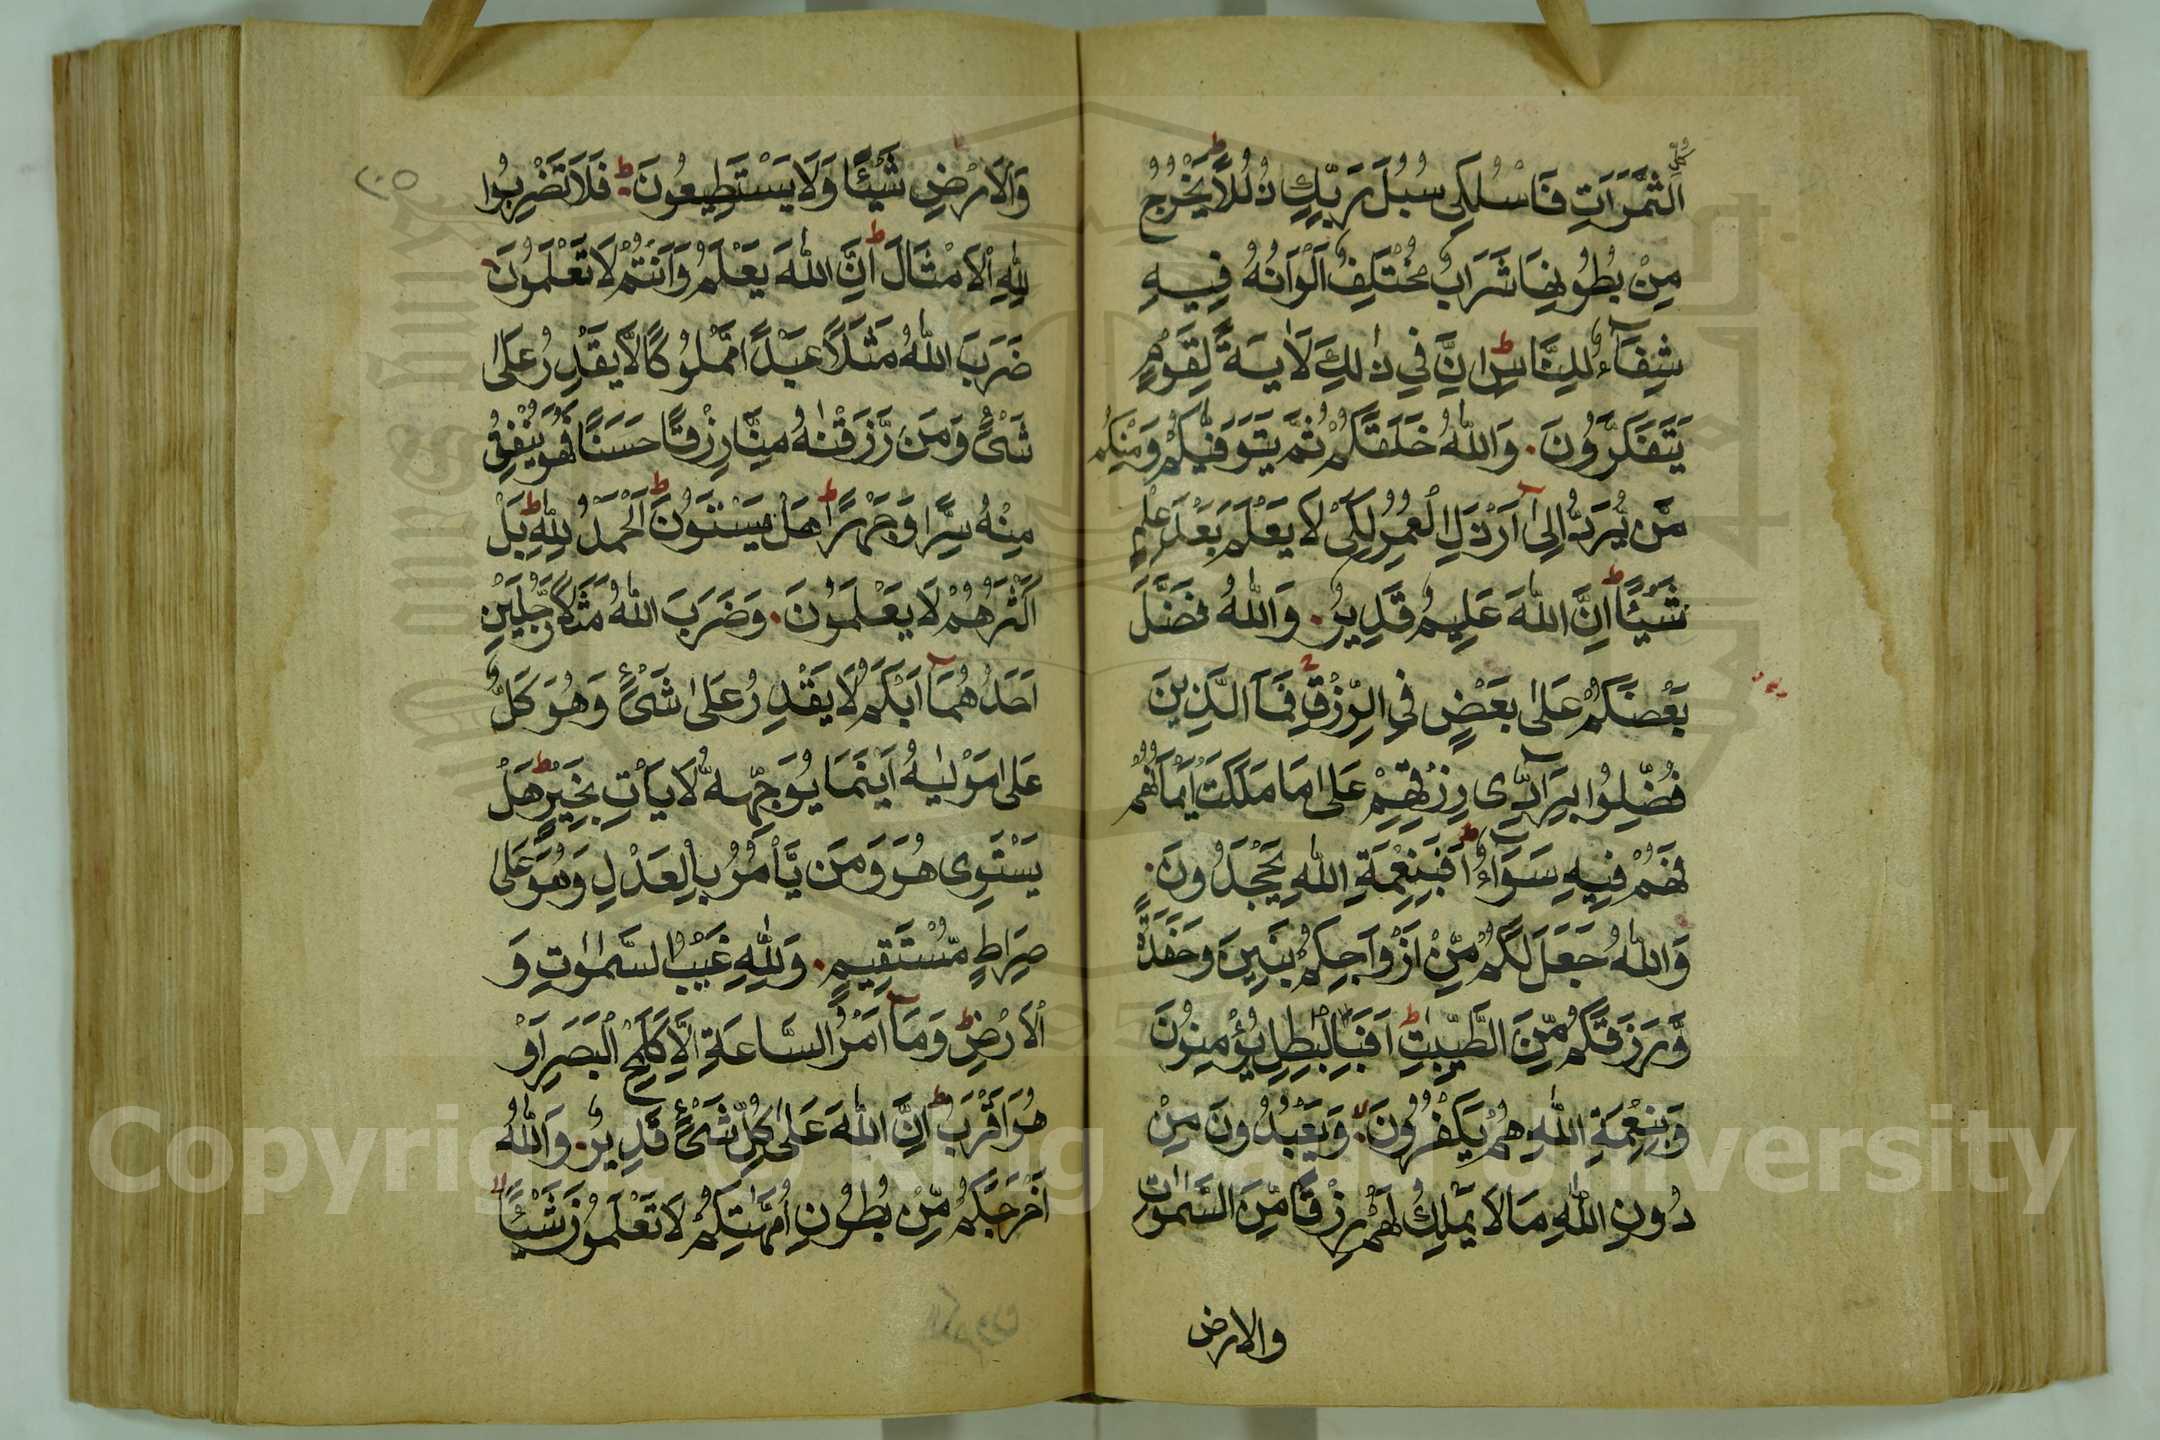 كُلِّ
الثَّمَرَاتِ فَاسْلُكِي سُبُلَ رَبِّكِ ذُلُلًا ط يَخْرُجُ
مِنْ بُطُونِهَا شَرَابٌ مُخْتَلِفٌ اَلْوَانُهُ فِيهِ
شِفَآءٌ لِلنَّاسِ ط اِنَّ فِي ذٰلِكَ لَاٰيَةً لِقَوْمٍ
يَتَفَكَّرُونَ . وَاللّٰهُ خَلَقَكُمْ ثُمَّ يَتَوَفّٰيكُمْ وَمِنْكُمْ
مَّن يُّرَدُّ اِلٰى اَرْذَلِ الْعُمُرِ لِكَىْ لَا يَعْلَمَ بَعْدَ عِلْمٍ
شَيْئًا ط اِنَّ اللّٰهَ عَلِيمٌ قَدِيرٌ . وَاللّٰهُ فَضَّلَ
بَعْضَكُمْ عَلٰى بَعْضٍ فِي الرِّزْقِ فَمَا الَّذِينَ
فُضِّلُوا بِرَآدِّى رِزْقِهِمْ عَلٰى مَا مَلَكَتْ اَيْمَانُهُمْ
فَهُمْ فِيهِ سَوَآءٌ ط اَفَبِنِعْمَةِ اللّٰهِ يَجْحَدُونَ .
وَاللّٰهُ جَعَلَ لَكُمْ مِّنْ اَزْوَاجِكُمْ بَنِينَ وَحَفَدَةً
وَّرَزَقَكُمْ مِّنَ الطَّيِّبٰتِ ط اَفَبِالْبٰطِلِ يُؤْمِنُونَ
وَبِنِعْمَةِ اللّٰهِ هُمْ يَكْفُرُونَ . وَيَعْبُدُونَ مِنْ
دُونِ اللّٰهِ مَا لَا يَمْلِكُ لَهُمْ رِزْقًا مِّنَ السَّمٰوٰتِ
والارض
وَالْاَرْضِ شَيْئًا وَلَا يَسْتَطِيعُونَ . ط فَلَا تَضْرِبُوا
لِلّٰهِ الْاَمْثَالَ ط اِنَّ اللّٰهَ يَعْلَمُ وَاَنْتُمْ لَا تَعْلَمُونَ .
ضَرَبَ اللّٰهُ مَثَلًا عَبْدًا مَّمْلُوكًا لَّا يَقْدِرُ عَلٰى
شَىْءٍ وَمَنْ رَّزَقْنٰهُ مِنَّا رِزْقًا حَسَنًا فَهُوَ يُنْفِقُ
مِنْهُ سِرًّا وَجَهْرًا ط هَلْ يَسْتَوُونَ ط اَلْحَمْدُ لِلّٰهِ ط بَلْ
اَكْثَرُهُمْ لَا يَعْلَمُونَ . وَضَرَبَ اللّٰهُ مَثَلًا رَّجُلَيْنِ
اَحَدُهُمَا اَبْكَمُ لَا يَقْدِرُ عَلٰى شَىْءٍ وَهُوَ كَلٌّ
عَلٰى مَوْلٰيهُ اَيْنَمَا يُوَجِّهْهُّ لَا يَأْتِ بِخَيْرٍ ط هَلْ
يَسْتَوِى هُوَ وَمَن يَّأْمُرُ بِالْعَدْلِ وَهُوَ عَلٰى
صِرَاطٍ مُّسْتَقِيمٍ . وَلِلّٰهِ غَيْبُ السَّمٰوٰتِ وَ
الْاَرْضِ ط وَمَا اَمْرُ السَّاعَةِ اِلَّا كَلَمْحِ الْبَصَرِ اَوْ
هُوَ اَقْرَبُ ط اِنَّ اللّٰهَ عَلٰى كُلِّ شَىْءٍ قَدِيرٌ . وَاللّٰهُ
اَخْرَجَكُمْ مِّنْ بُطُونِ اُمَّهٰتِكُمْ لَا تَعْلَمُونَ شَيْئًا
Copyright © King Saud University